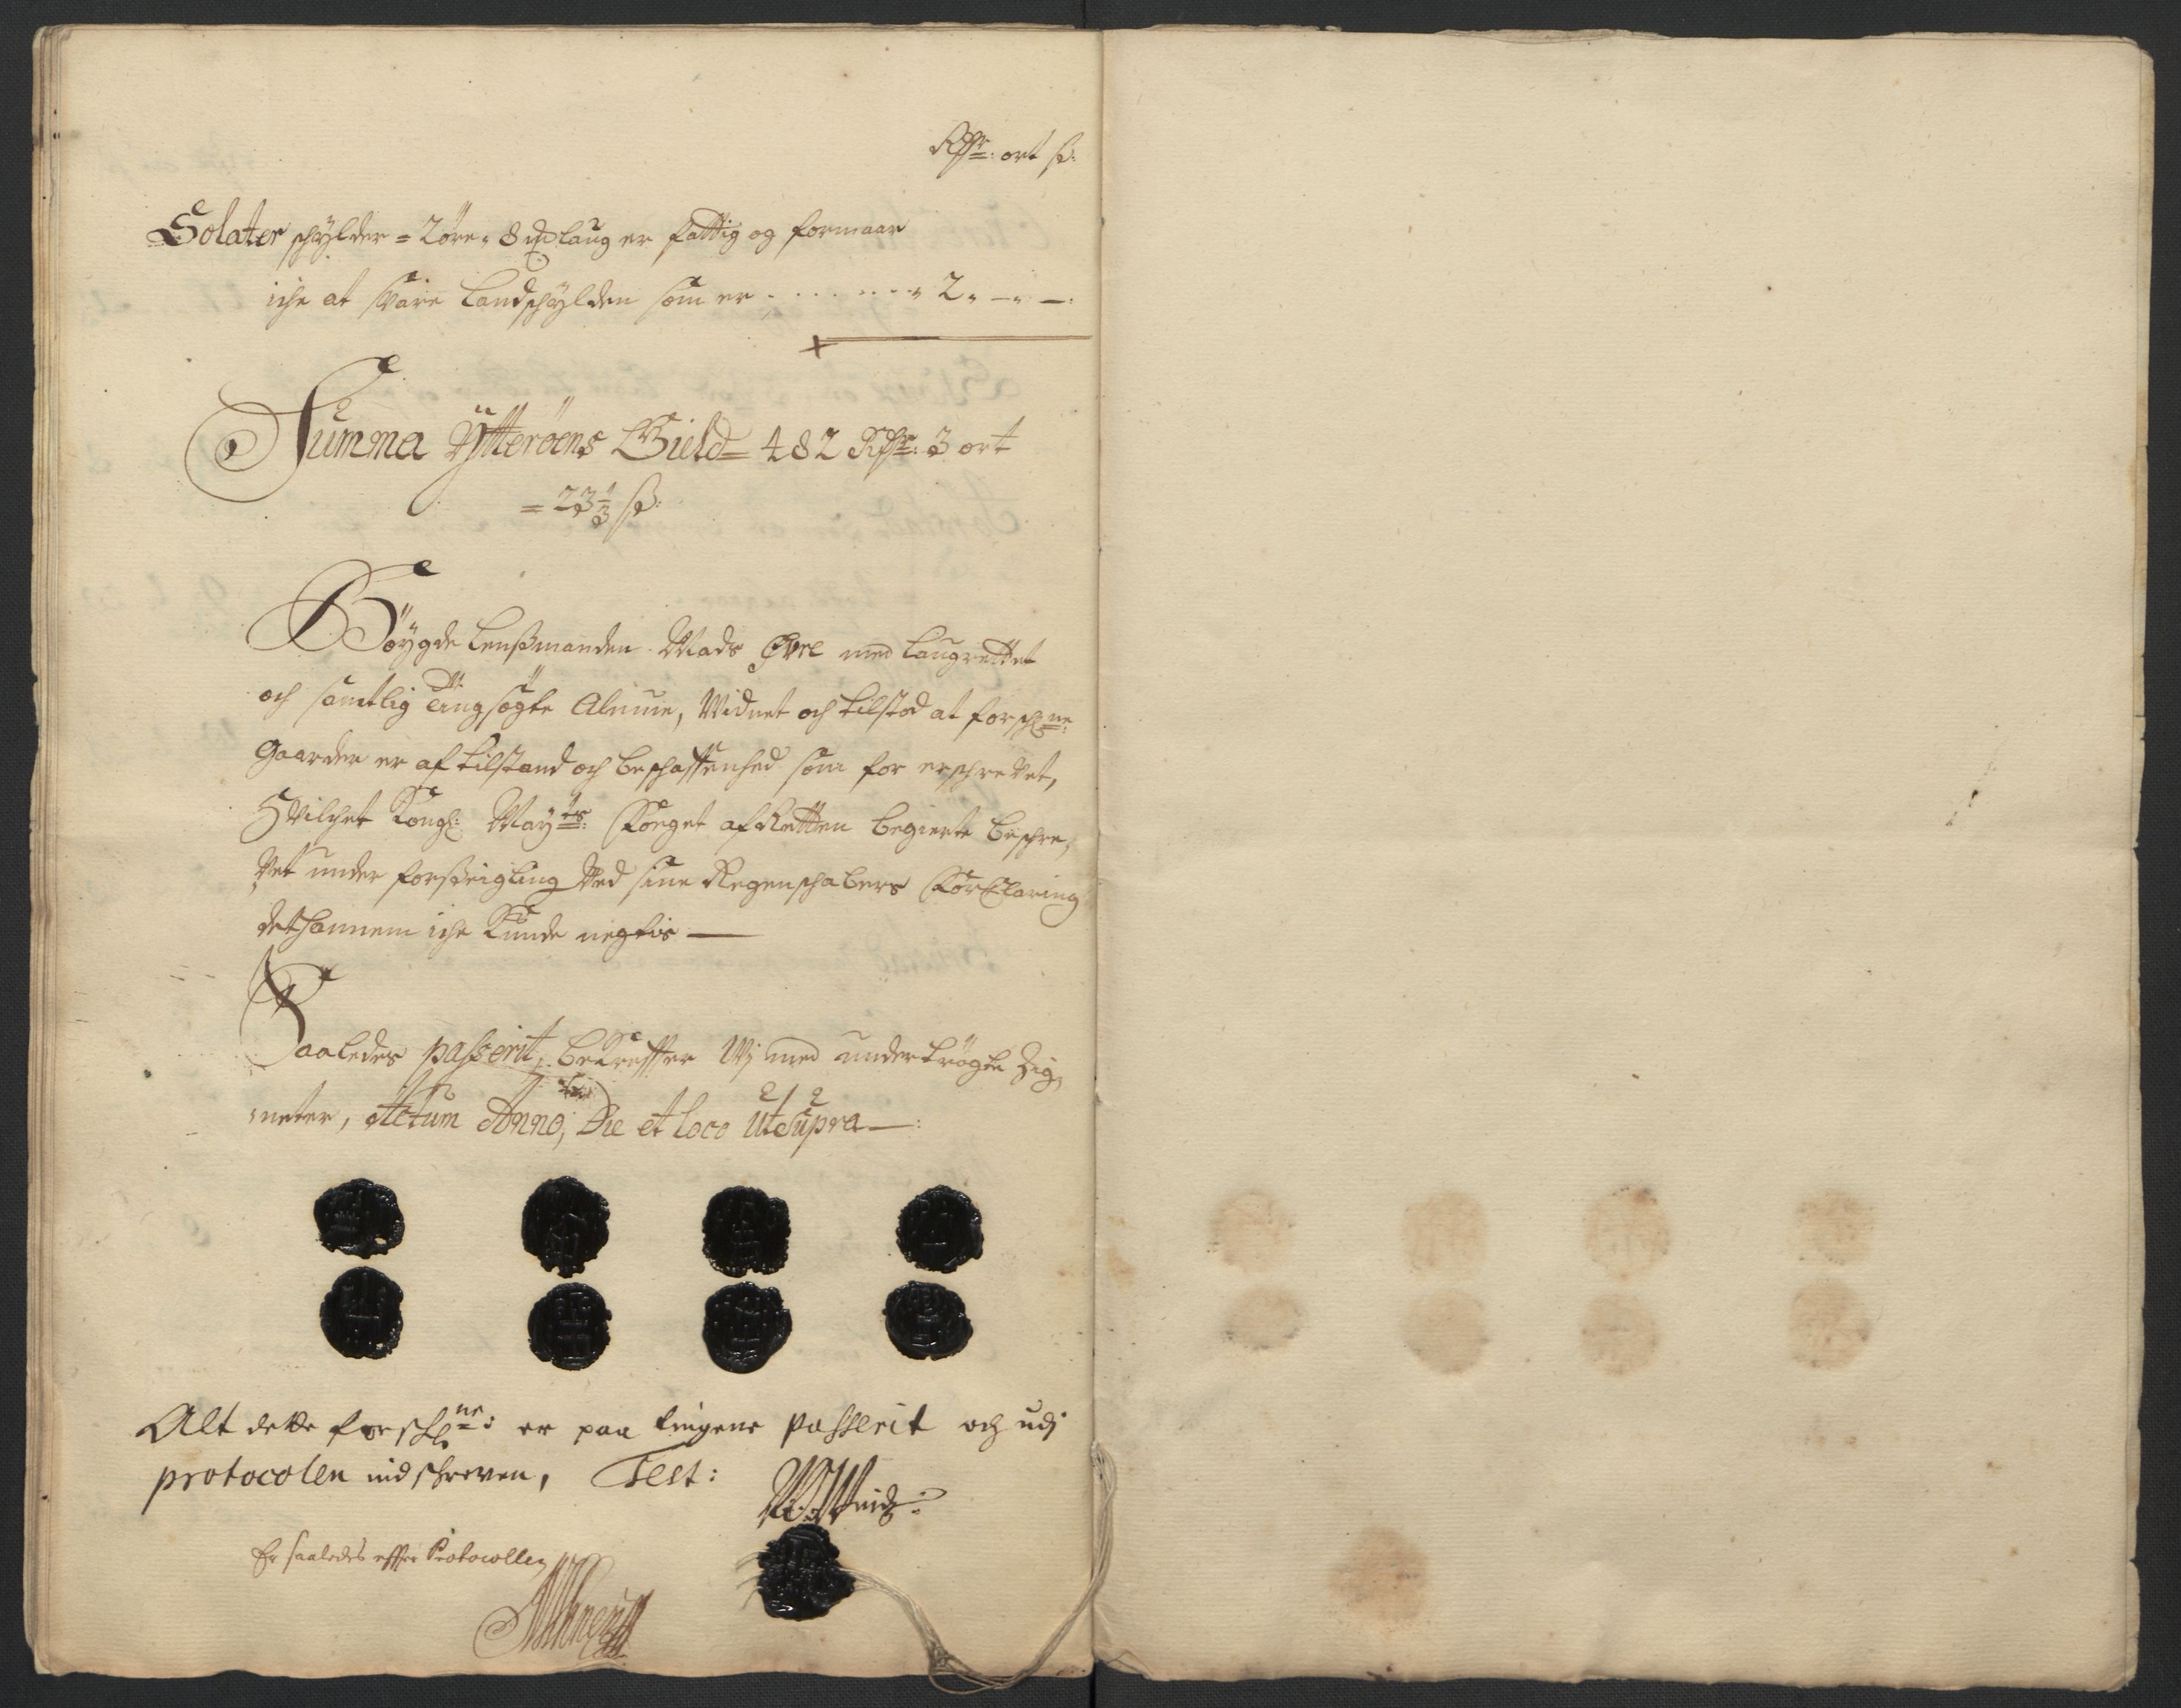 Rdr: ort ß:
Solater schylder = 2 öre " 8 mdlaug er fattig og formaar
iche at Svare Landschylden som er . . . . . . . " 2 " — " — :
Summa Ÿtterøens Gield = 482 Rdr: 3 ort
= 23 1/3 ß:
Bøygde Lenßmanden Mads Øvre med Laugrettet
och samtlig Tingsøgte Almue, Widnet och tilstod at forschne:
Gaarder er af tilstand och beschaffenhed som for erschrevet,
Hvilchet Kongl: Mayts: Foeget af Retten begierte beschre,
vet under forseigling Ved sine Regenschabers Forklaring
det hannem iche Kunde negtis —
Saaledes passerit, bekreffter Wj med undertrögte Zig,
neter, Actum Anno, Die et loco Ut Supra — :
Alt dette forschne: er paa tingene passerit och udj
protocollen indschreven, Test:
Er saaledes efter Protocollen